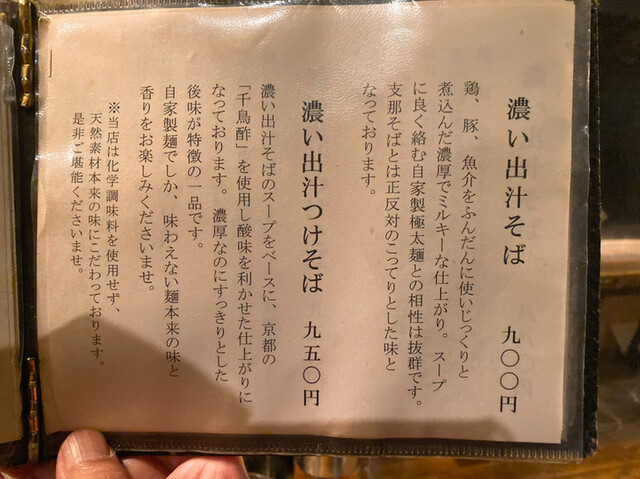 濃い出汁そば 九〇〇円
鶏、豚、魚介をふんだんに使いじっくりと
煮込んだ濃厚でミルキーな仕上がり。スープ
に良く絡む自家製極太麺との相性は抜群です。
支那そばとは正反対のこってりとした味と
なっております。
濃い出汁つけそば 九五〇円
濃い出汁そばのスープをベースに、京都の
「千鳥酢」を使用し酸味を利かせた仕上がりに
なっております。濃厚なのにすっきりとした
後味が特徴の一品です。
自家製麺でしか、味わえない麺本来の味と
香りをお楽しみくださいませ。
※当店は化学調味料を使用せず、
天然素材本来の味にこだわっております。
是非ご堪能くださいませ。